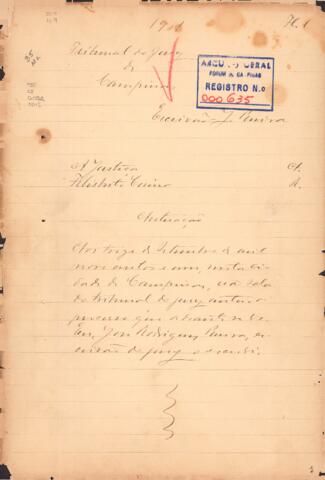 1901
Fl. 1
Tribunal do Jury
de
Campinas
ARQUIVO GERAL
FORUM DE CAMPINAS
REGISTRO N.o
000635
Escrivão J. Pereira
A Justiça A.
Felisberto R.
Autuação
Aos treze de Setembro de mil
novecentos e um, nesta ci-
dade de Campinas, na sala
do tribunal do jury autuo o
processo que adiante se vê.
Eu, José Rodrigues Pereira, es-
crivão do jury o escrevi.